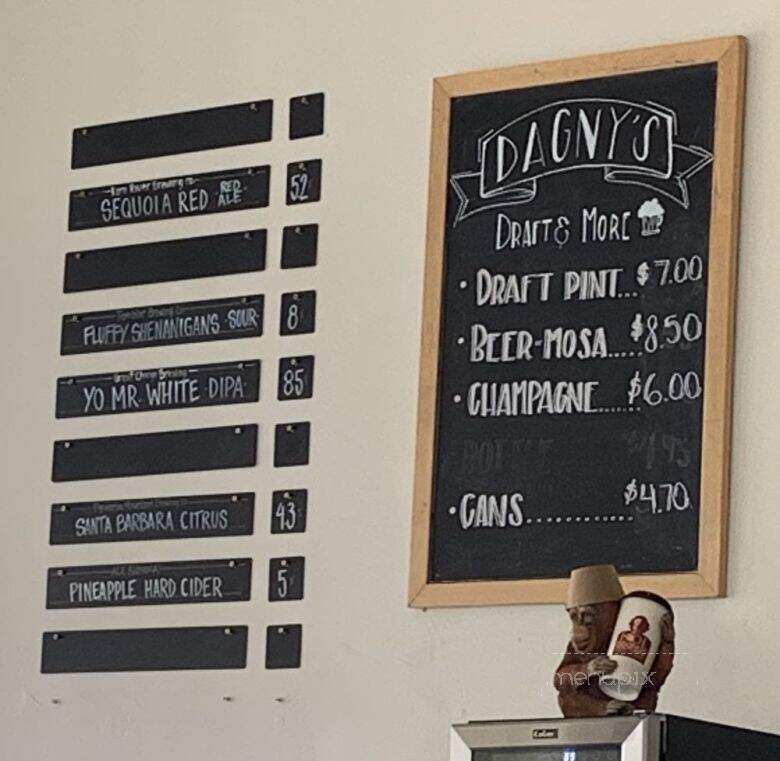 Kern River Brewing Co.
SEQUOIA RED RED ALE 52
FLUFFY SHENANIGANS SOUR 8
Brewing
YO MR. WHITE DIPA 85
SANTA BARBARA CITRUS 43
PINEAPPLE HARD CIDER 5
DAGNY'S
DRAFT & MORE
• DRAFT PINT... $7.00
• BEER-MOSA..... $8.50
• CHAMPAGNE...... $6.00
BOTTLE $4.95
• CANS............. $4.70
menupix